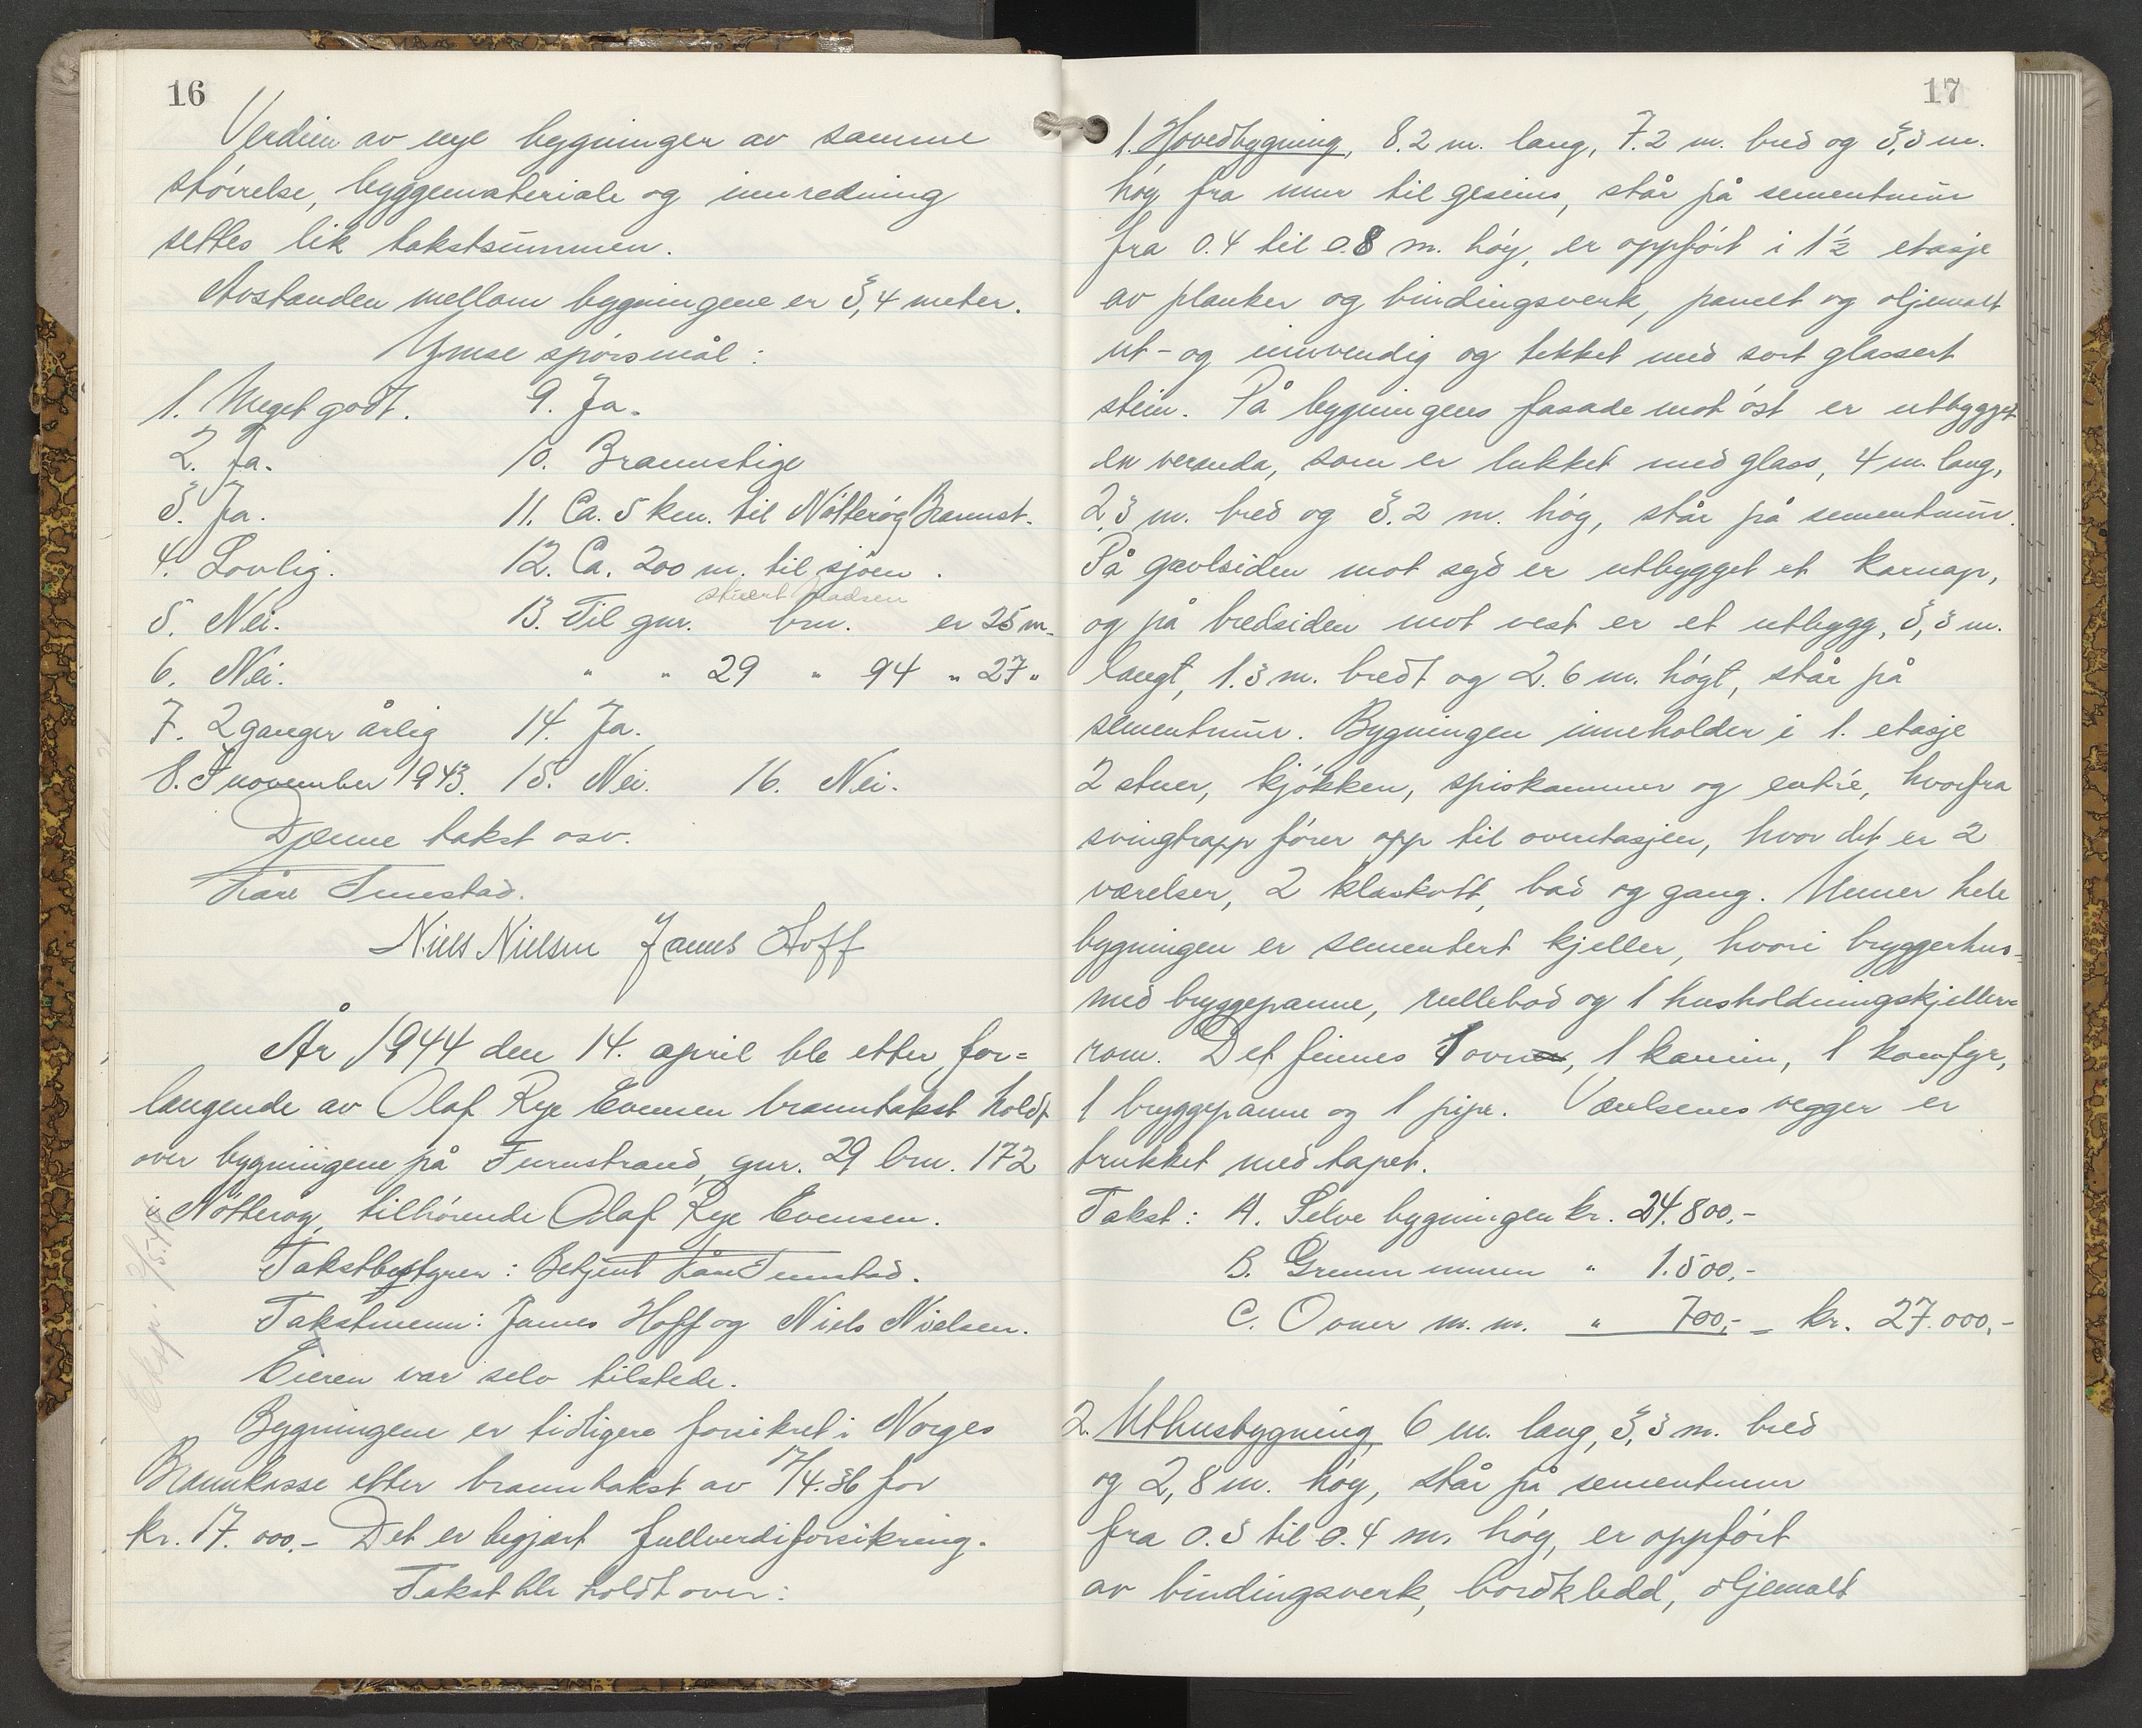 16
Verdien av nye bygninger av samme
størrelse, byggemateriale og innredning
settes lik takstsummen.
Avstanden mellom bygningene er 3,4 meter.
Ymse spørsmål:
1. Meget godt. 9. Ja.
2. Ja. 10. Brannstige
3. Ja. 11. Ca. 5 km. til Nøtterøy Brannst.
4. Lovlig. 12. Ca. 200 m. til sjøen.
5. Nei. 13. Til gnr. brn. er 25 m.
6. Nei. " " 29 " 94 " 27 "
7. 2 ganger årlig 14. Ja.
8. I november 1943. 15. Nei. 16. Nei.
Denne takst osv.
Kåre Tunstad.
Niels Nielsen James Hoff
År 1944 den 14. april ble etter for=
langende av Olaf Rye Evensen branntakst holdt
over bygningene på Furustrand, gnr. 29 brn. 172
i Nøtterøy, tilhørende Olaf Rye Evensen.
Takstbestyrer: Betjent Kåre Tunstad.
Takstmenn: James Hoff og Niels Nielsen.
Eieren var selv tilstede.
Bygningene er tidligere forsikret i Norges
Brannkasse etter branntakst av 17/4.36 for
kr. 17.000.- Det er begjært fullverdiforsikring.
Takst ble holdt over:
17
1. Hovedbygning, 8.2 m. lang, 7.2 m. bred og 3,3 m.
høg fra mur til gesims, står på sementmur
fra 0.4 til 0.8 m. høg, er oppført i 1½ etasje
av planker og bindingsverk, panelt og oljemalt
ut- og innvendig og tekket med sort glassert
stein. På bygningens fasade mot øst er utbygget
en veranda, som er lukket med glass, 4 m. lang,
2,3 m. bred og 3.2 m. høg, står på sementmur.
På gavlsiden mot syd er utbygget et karnap,
og på bredsiden mot vest er et utbygg, 3,3 m.
langt, 1.3 m. bredt og 2.6 m. høgt, står på
sementmur. Bygningen inneholder i 1. etasje
2 stuer, kjøkken, spiskammer og entré, hvorfra
svingtrapp fører opp til overetasjen, hvor det er 2
værelser, 2 kleskott, bad og gang. Under hele
bygningen er sementert kjeller, hvori bryggerhus=
med bryggepanne, rullebod og 1 husholdningskjeller=
rom. Det finnes 1 ovn, 1 kamin, 1 komfyr,
1 bryggepanne og 1 pipe. Værelsenes vegger er
trukket med tapet.
Takst: A. Selve bygningen kr. 24.800,-
B. Grunnmuren " 1.500,-
C. Ovner m.m. " 700,- = kr. 27.000,-
2. Uthusbygning, 6 m. lang, 3,3 m. bred
og 2,8 m. høg, står på sementmur
fra 0.3 til 0.4 m. høg, er oppført
av bindingsverk, bordkledd, oljemalt